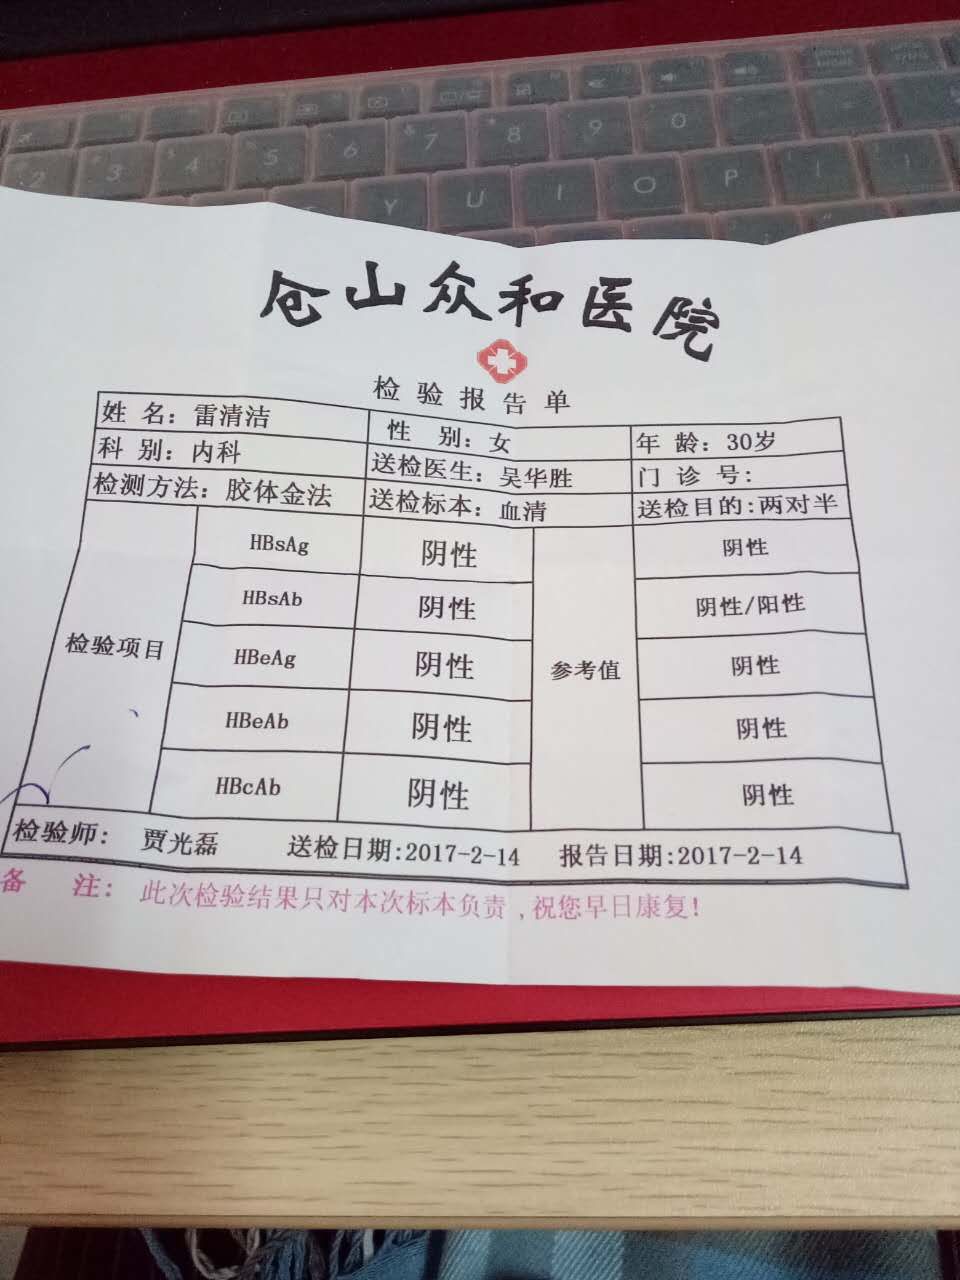 2 3 4 5 6 7 8 9 0
Y U I O P
仓山众和医院
检验报告单
姓 名：雷清洁 性 别：女 年 龄：30岁
科 别：内科 送检医生：吴华胜 门 诊 号：
检测方法：胶体金法 送检标本：血清 送检目的：两对半
检验项目 HBsAg 阴性 参考值 阴性
HBsAb 阴性 阴性/阳性
HBeAg 阴性 阴性
HBeAb 阴性 阴性
HBcAb 阴性 阴性
检验师： 贾光磊 送检日期:2017-2-14 报告日期:2017-2-14
备 注: 此次检验结果只对本次标本负责,祝您早日康复!